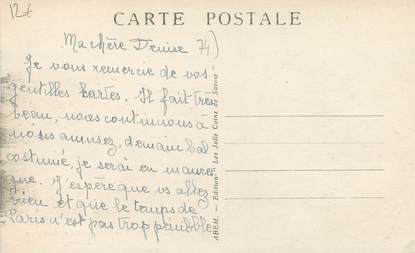 12€
CARTE POSTALE
Ma chère Denise 74)
Je vous remercie de vos
gentilles kartes. Il fait très
beau, nous continuons à
nous amusez, demain bal
costumé, je serai en maures
que. J'espère que vs allez
bien et que le temps de
Paris n'est pas trop pénible
ABEM. - Edition " Les Jolis Coins de Savoie "